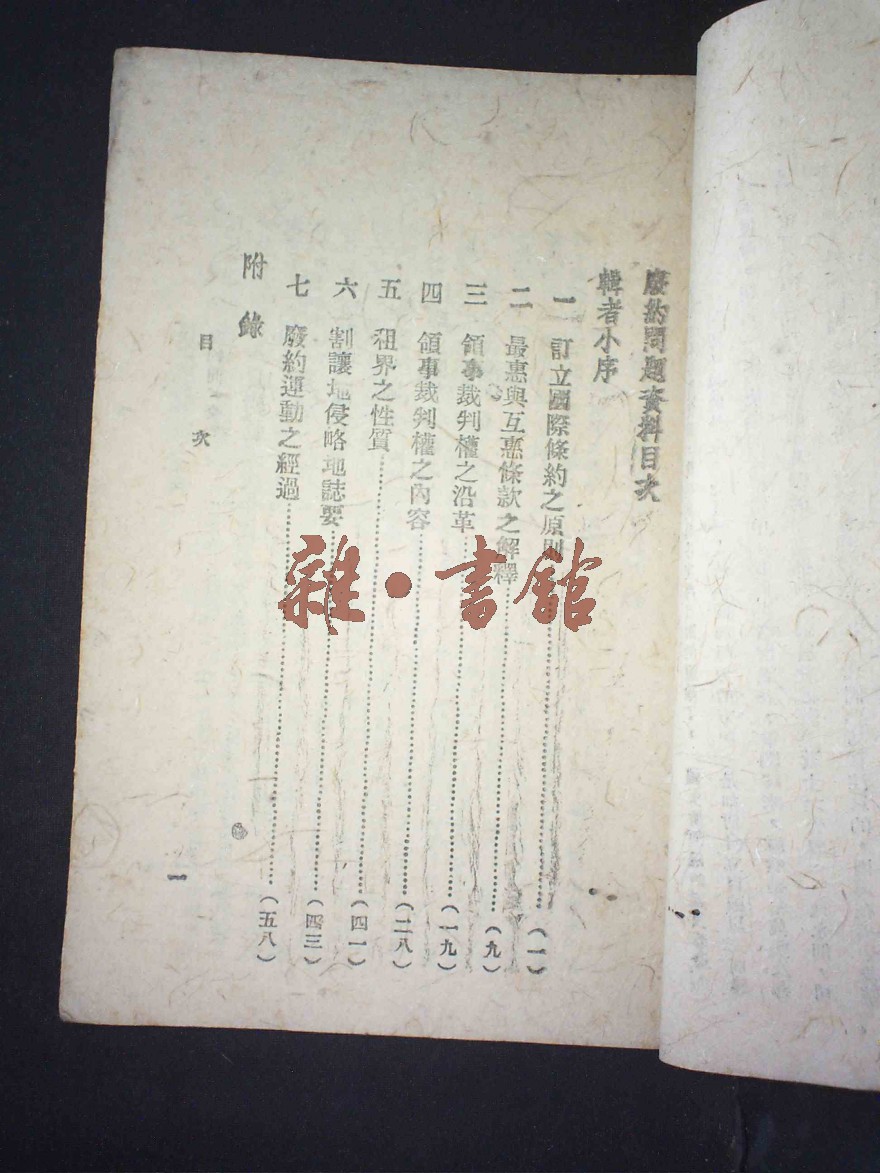 廢約問題資料目次
輯者小序
一 訂立國際條約之原則……(一)
二 最惠與互惠條款之解釋……(九)
三 領事裁判權之沿革……(一九)
四 領事裁判權之內容……(二八)
五 租界之性質……(四一)
六 割讓地侵略地誌要……(四三)
七 廢約運動之經過……(五八)
附錄
目次
一
雜·書館